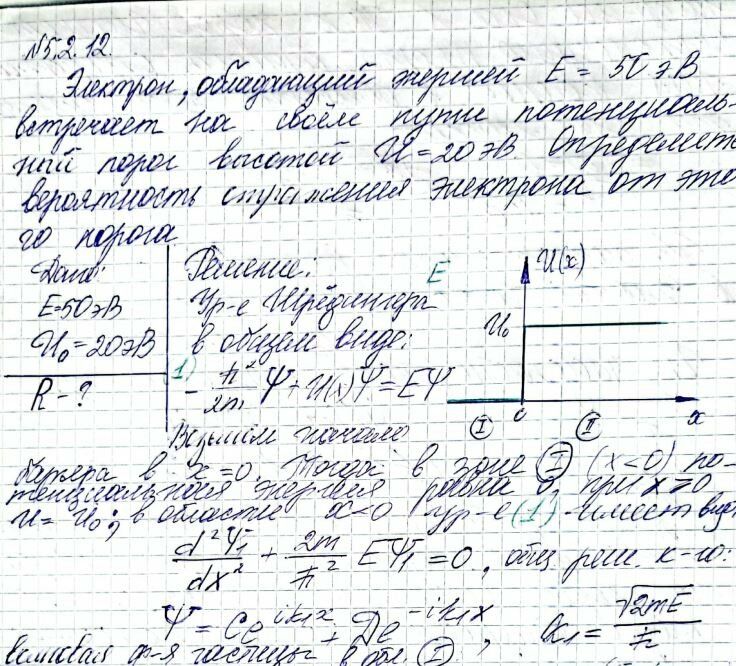 N5.2.12.
Электрон, обладающий энергией E = 50 эВ
встречает на своём пути потенциаль-
ный порог высотой U = 20 эВ. Определить
вероятность отражения электрона от это
го порога
Дано:
E = 50 эВ
U₀ = 20 эВ
R - ?
Решение:
Ур-е Шрёдингера
в общем виде:
(1) - ħ²/2m Ψ + U(x)Ψ = EΨ
Возьмем начало
E
U(x)
U₀
0
x
I
II
барьера в x = 0. Тогда в зоне I (x < 0) по-
тенциальная энергия равна 0, при x > 0
U = U₀; в области x < 0 ур-е (1) имеет вид
d²Ψ₁/dx² + 2m/ħ² EΨ₁ = 0, общ. реш. к-го:
Ψ = Ce^{ik₁x} + De^{-ik₁x}, k₁ = √2mE/ħ
волновая ф-я частицы в обл. I